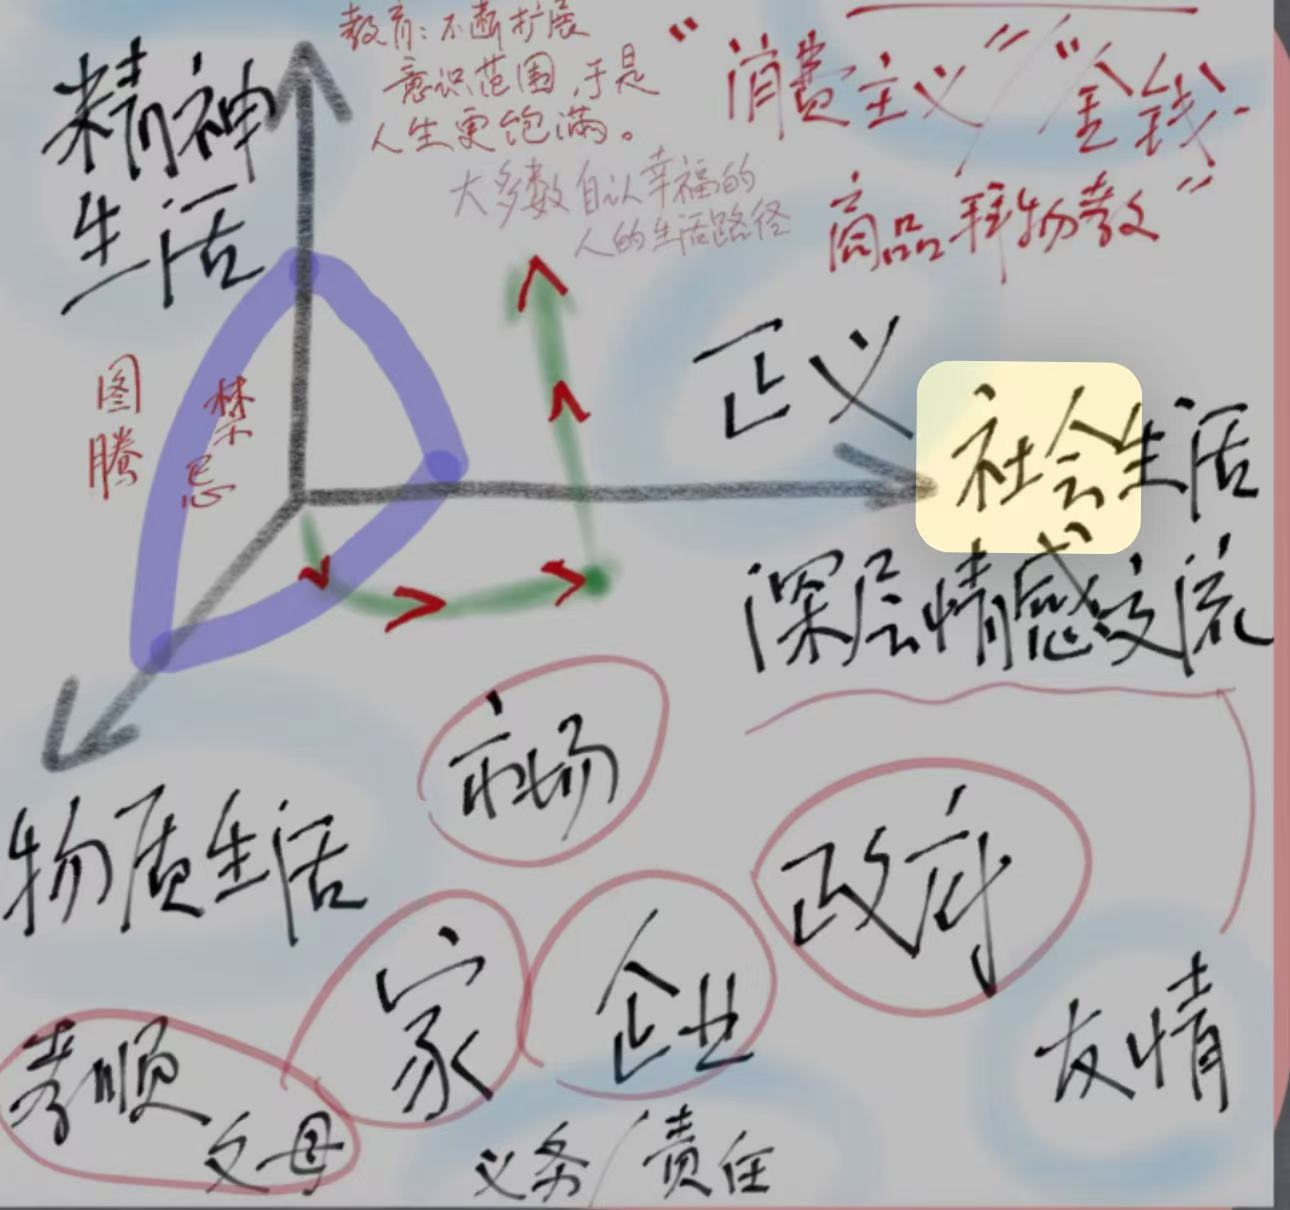 精神
生活
教育：不断扩展
意识范围，于是
人生更饱满。
大多数自认幸福的
人的生活路径
“消费主义”“金钱·
商品拜物教”
图腾
禁忌
正义
社会生活
深层情感交流
物质生活
市场
政府
家
企业
孝顺
父母
义务/责任
友情